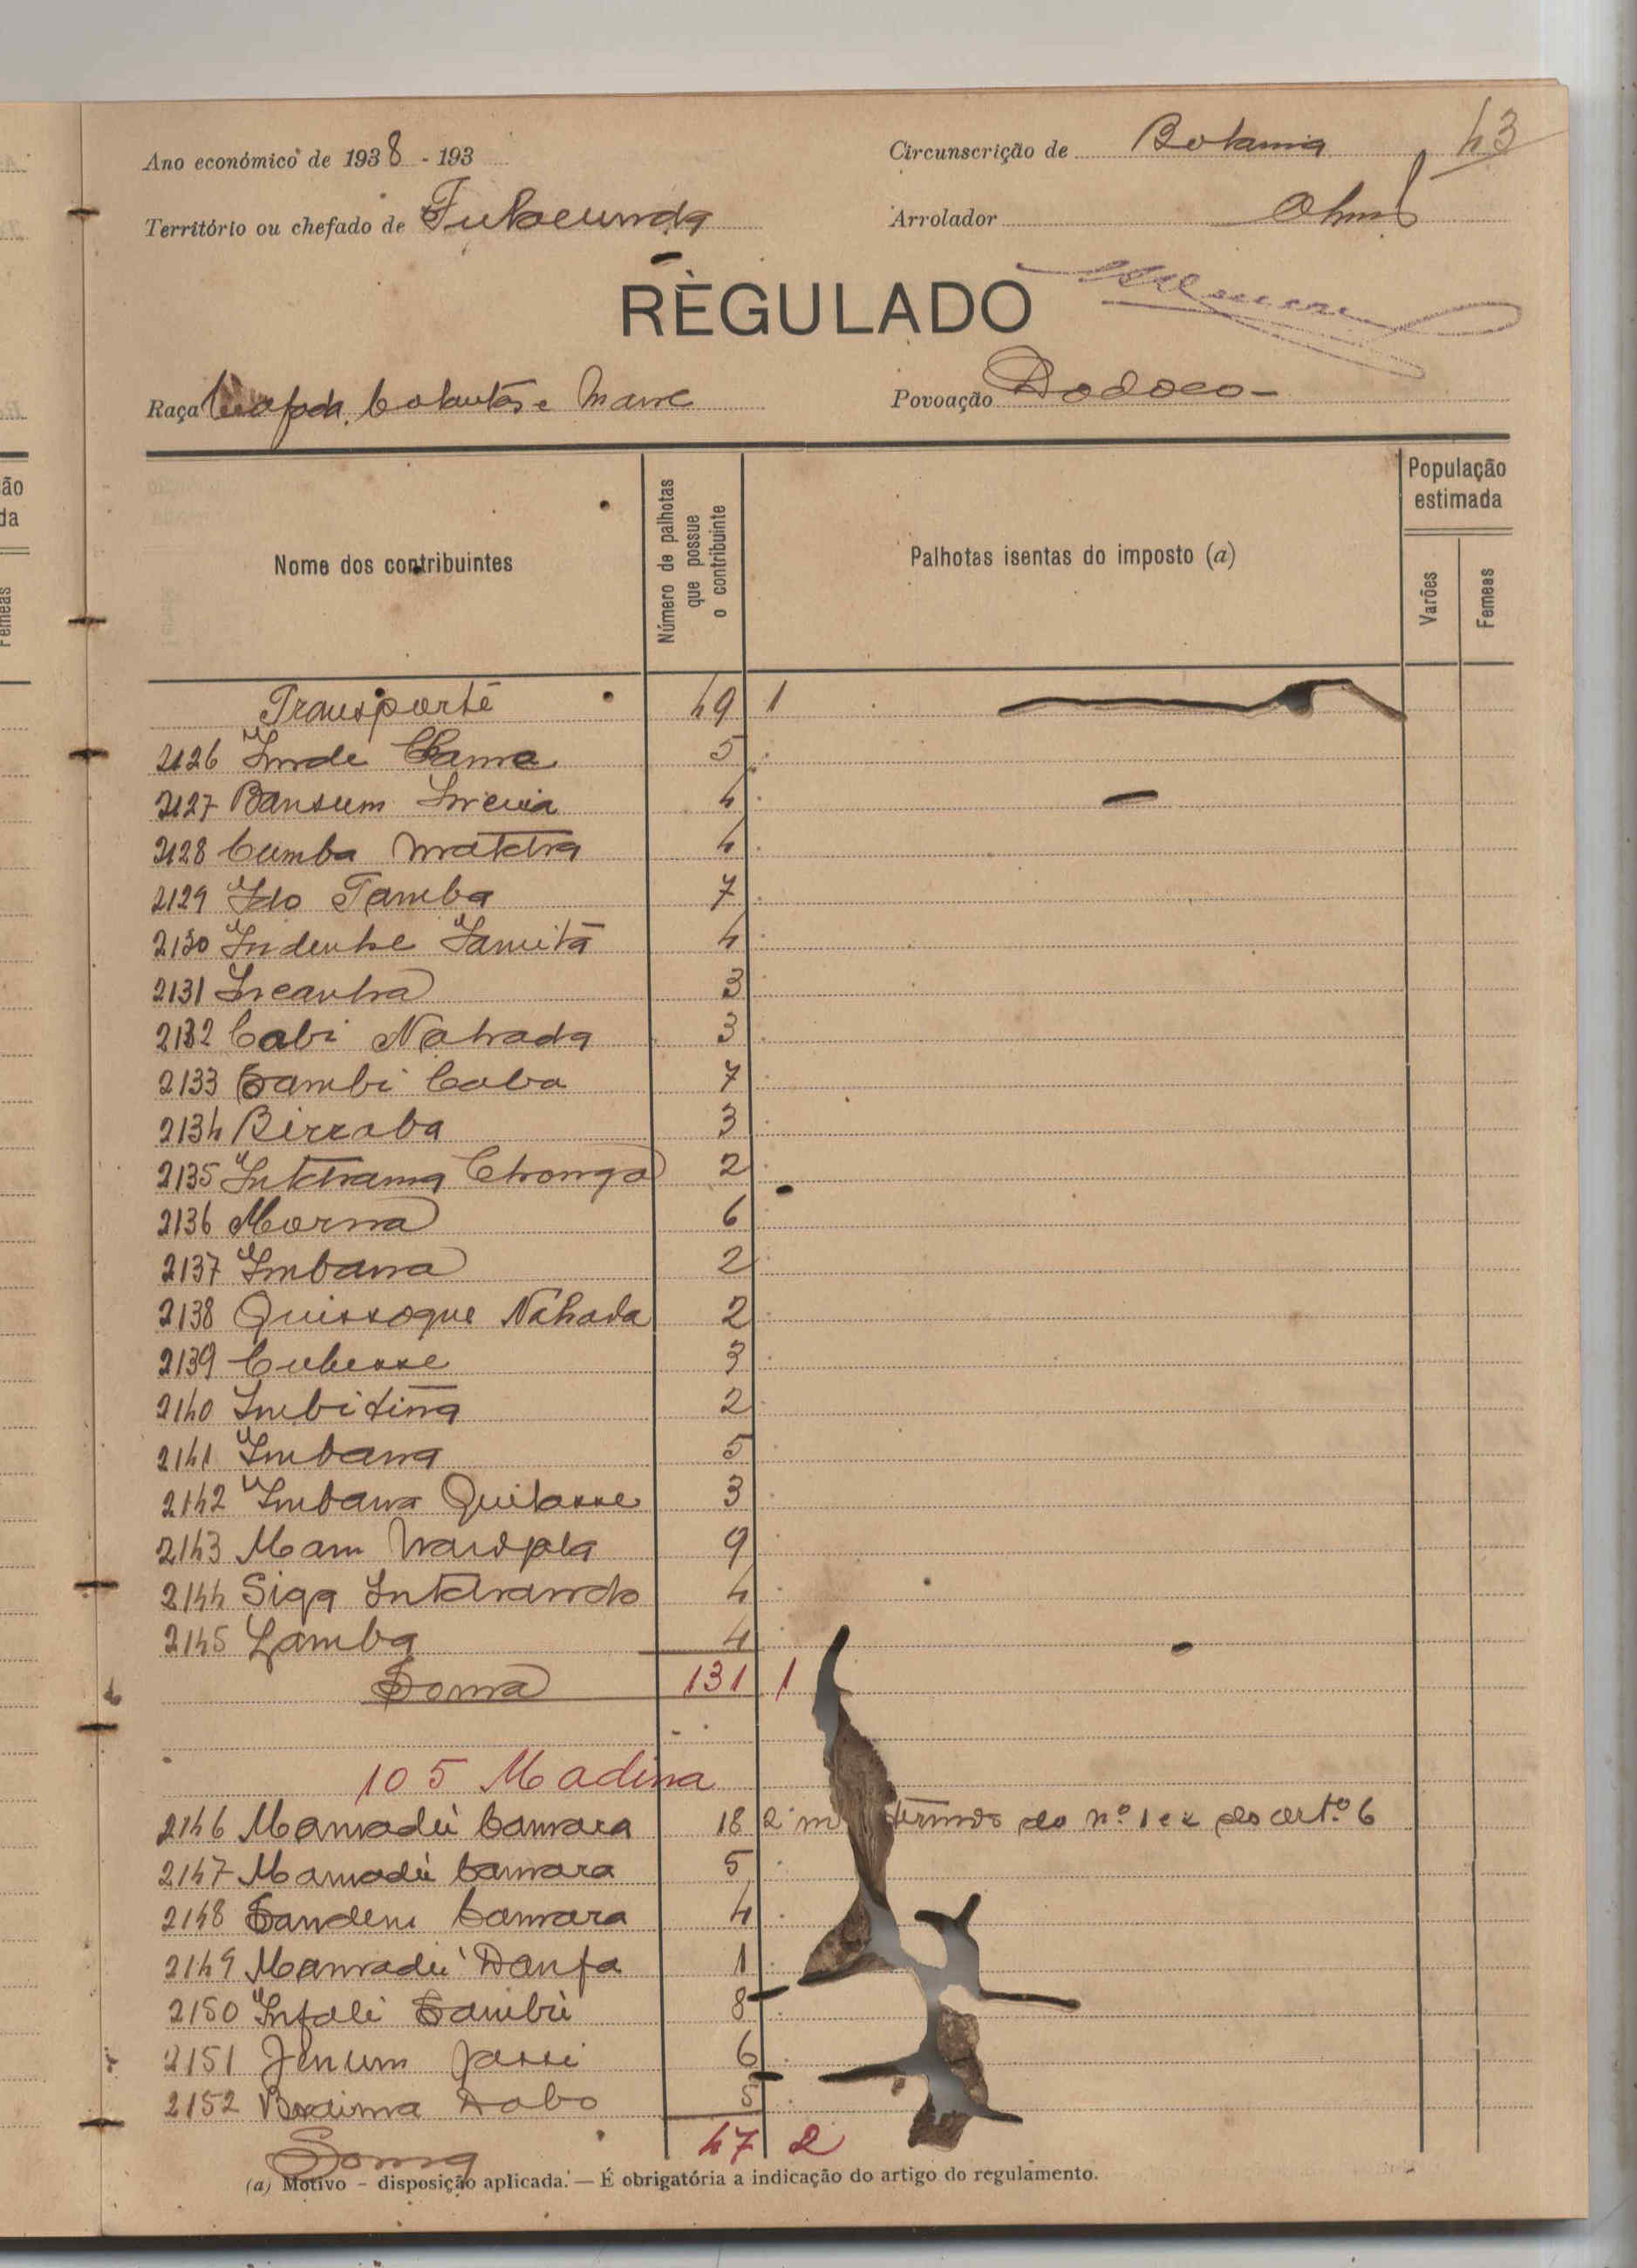 43
Ano económico de 1938 - 193
Circunscrição de Bolama
Território ou chefado de Fulacunda
Arrolador
REGULADO
Raça Biafada, Balantas e Mane
Povoação Dodoco
Nome dos contribuintes
Número de palhotas que possue o contribuinte
Palhotas isentas do imposto (a)
População estimada
Varões
Femeas
Transporte 49 1
2126 Inde Cama 5
2127 Bansum 4
2128 Cumba 4
2129 Ido Tamba 7
2130 4
2131 3
2132 Cabi Nahada 3
2133 Sambi Caba 7
2134 Birraba 3
2135 2
2136 Morna 6
2137 Imbana 2
2138 Quissoque Náhada 2
2139 3
2140 2
2141 Imbana 5
2142 Imbana Quitasse 3
2143 Mam 9
2144 Siga 4
2145 Lamba 4
Soma 131 1
105 Madina
2146 Mamadú Camara 18 2 termos do nº 1 e 2 do artº 6
2147 Mamadú Camara 5
2148 Sandem Camara 4
2149 Mamadú Danfa 1
2150 Infali Sambú 8
2151 Jenum Jassi 6
2152 Braima Dabo 5
Soma 47 2
(a) Motivo - disposição aplicada. — É obrigatória a indicação do artigo do regulamento.